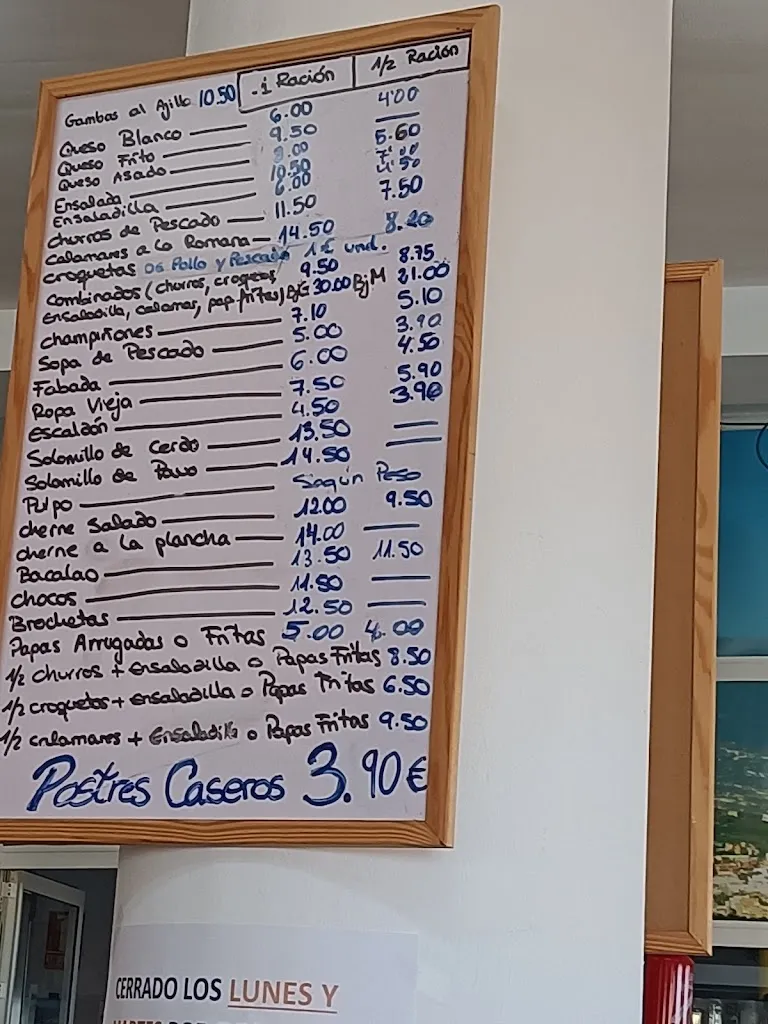 Gambas al Ajillo 10.50 -1 Ración 1/2 Ración
Queso Blanco 6.00 4'00
Queso Frito 9.50
Queso Asado 5.60
Ensalada 10.50
Ensaladilla 6.00 4'50
Churros de Pescado 11.50 7.50
Calamares a la Romana 14.50 8.20
Croquetas de Pollo y Pescado 1€ und.
Combinados (churros, croquetas, 9.50 8.75
Ensaladilla, calamas, pap. fritas) BjG 30.00 BjM 21.00
Champiñones 7.10 5.10
Sopa de Pescado 5.00 3.90
Fabada 6.00 4.50
Ropa Vieja 7.50 5.90
Escaldón 4.50 3.90
Solomillo de Cerdo 13.50
Solomillo de Pavo 14.50
Pulpo Según Peso
Cherne Salado 12.00 9.50
Cherne a la plancha 14.00
Bacalao 13.50 11.50
Chocos 11.50
Brochetas 12.50
Papas Arrugadas o Fritas 5.00 4.00
1/2 churros + Ensaladilla o Papas Fritas 8.50
1/2 croquetas + ensaladilla o Papas Fritas 6.50
1/2 calamares + Ensaladilla o Papas Fritas 9.50
Postres Caseros 3.90€
CERRADO LOS LUNES Y